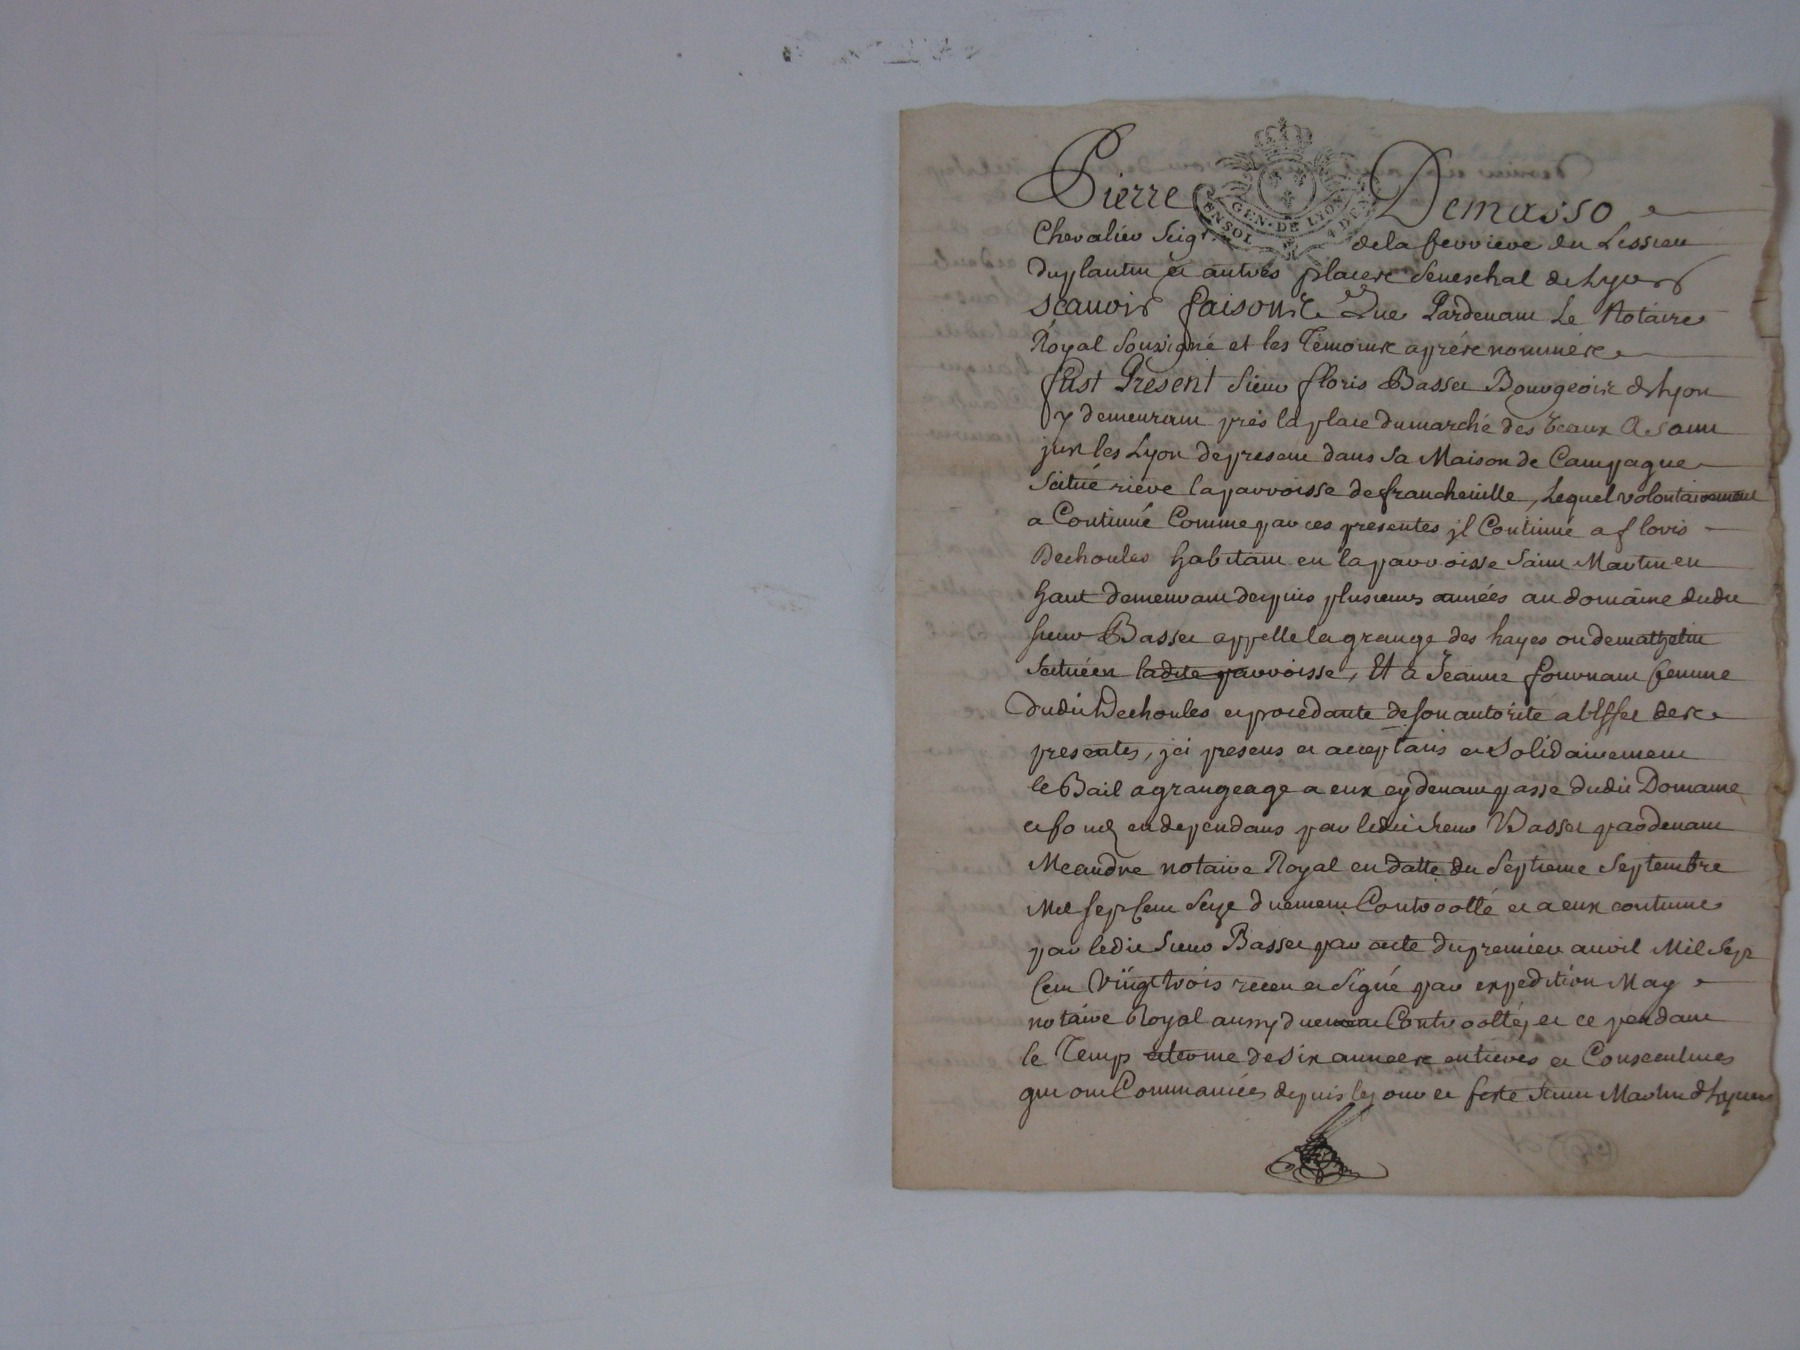 Pierre Demasso
GEN·DE LYON
EN SOL 4 DE
Chevalier Seigr. de la ferriere du Lissieu
Duplantin et autres places Seneschal de Lyon
Scauoir faisons Que Pardeuant Le Notaire
Royal Soussigné et les Témoins aprés nommés
fust Présent Sieur floris Basset Bourgeois de Lyon
y demeurant prés la place du marché des Veaux a Saint
just les Lyon depresent dans sa Maison de Campagne
Scitué riere la parroisse de francheville, Lequel volontairement
a Continué Comme par ces presentes jl Continue a floris
Dechoules habitant en la parroisse Saint Martin en
haut demeurant depuis plusieurs années au domaine dudit
sieur Basset appellé la grange des hayes ou de mathelin
Scitué en ladite parroisse, Et a Jeanne fournant femme
dudit Dechoules et procedante de son autorité a l'effet des
presentes, jci presens et acceptans et Solidairement
le Bail a grangeage a eux cydeuant passé dudit Domaine
et fonds en dependans par ledit sieur Basset pardeuant
Meandre notaire Royal en datte du Septieme Septembre
Mil Sept Cent Seize duement Controollé et a eux continué
par ledit Sieur Basset par acte du premier auril Mil Sept
Cent Vingt trois receu et Signé par expedition May
notaire Royal aussy duement Controollé, et ce pendant
le Temp et terme de Six années entieres et Consecutiues
qui ont Commancées depuis le jour et feste Saint Martin d'hyuer